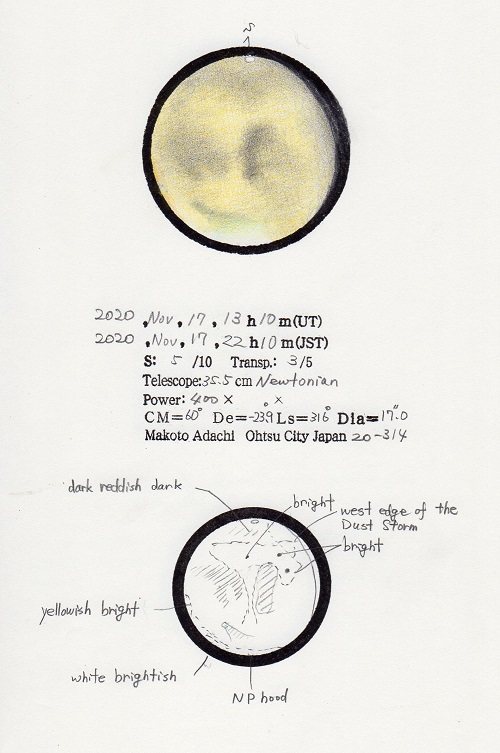 S
2020 , Nov , 17 , 13 h 10 m (UT)
2020 , Nov , 17 , 22 h 10 m (JST)
S: 5 /10 Transp.: 3/5
Telescope: 35.5 cm Newtonian
Power: 400 × 。×
CM=60° De=-23.9 Ls=316° Dia=17".0
Makoto Adachi Ohtsu City Japan 20-314
dark reddish dark
bright
west edge of the
Dust Storm
bright
yellowish bright
white brightish
NP hood